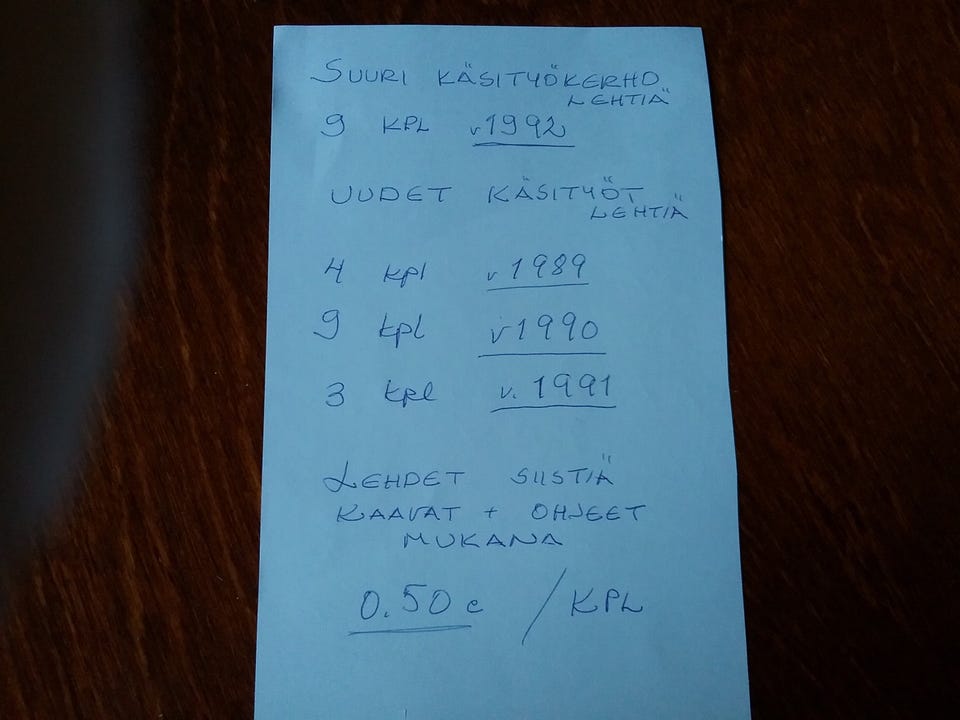 SUURI KÄSITYÖKERHO
LEHTIÄ
9 KPL v 1992
UUDET KÄSITYÖT
LEHTIÄ
4 kpl v 1989
9 kpl v 1990
3 kpl v. 1991
LEHDET SIISTIÄ
KAAVAT + OHJEET
MUKANA
0.50 e / KPL